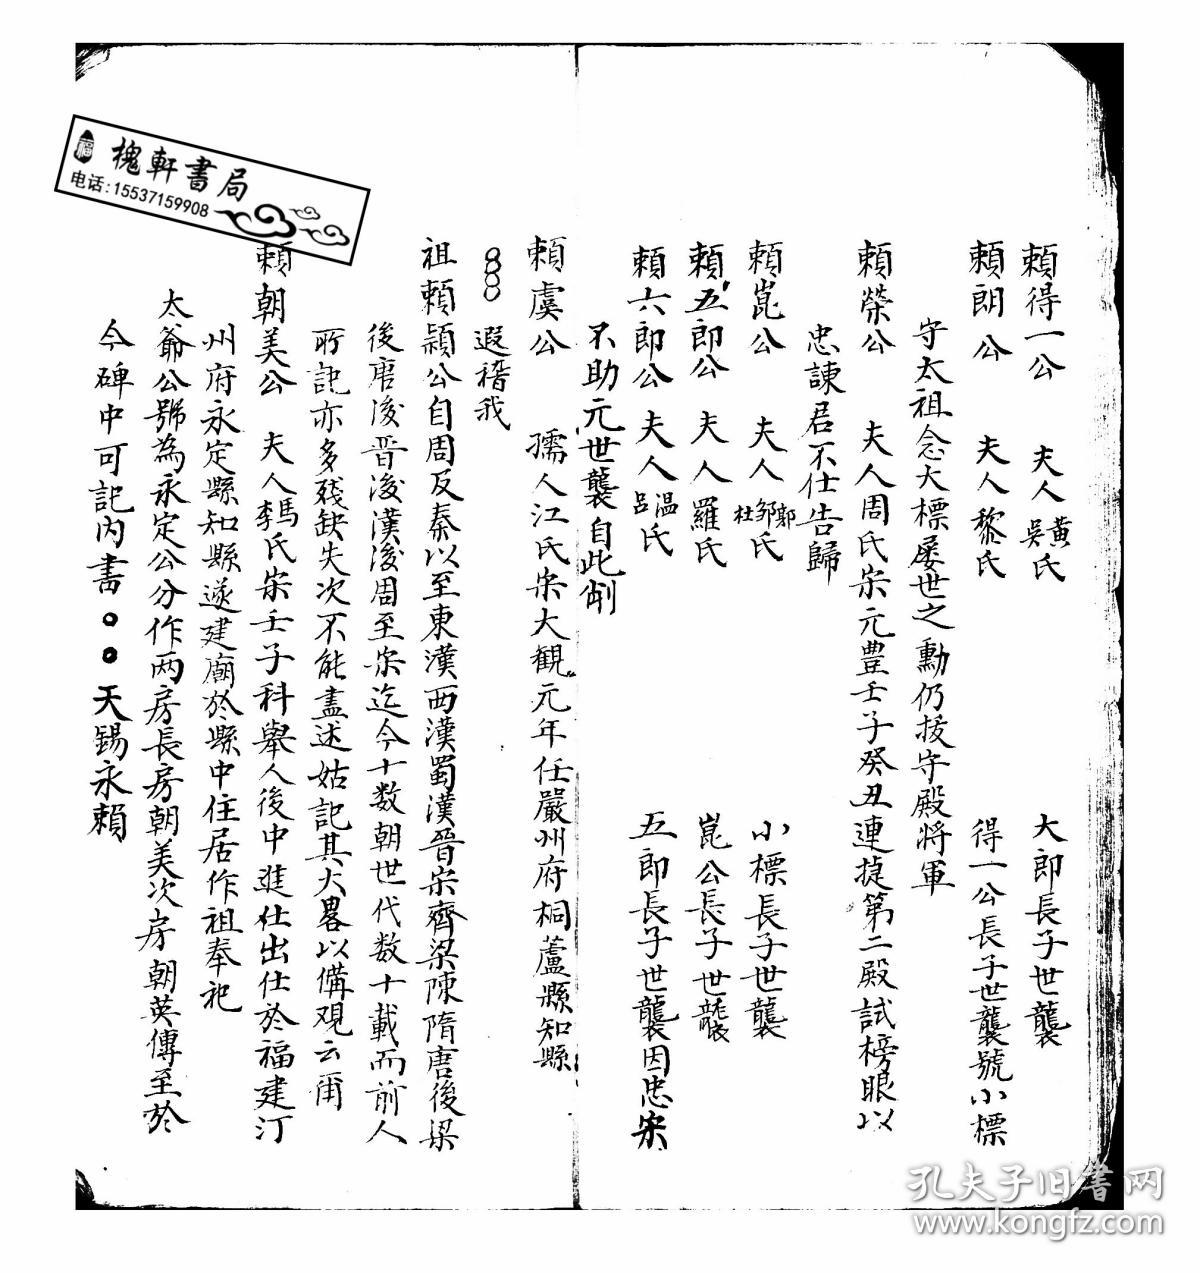 賴得一公　夫人黃吳氏　大郎長子世襲
賴朗公　夫人黎氏　得一公長子世襲號小標
守太祖念大標屡世之勳仍拔守殿將軍
賴榮公　夫人周氏宋元豊壬子癸丑連捷第二殿試榜眼以
忠諫君不仕告歸
賴崑公　夫人鄭鄒杜氏　小標長子世襲
賴五郎公　夫人羅氏　崑公長子世襲
賴六郎公　夫人温呂氏　五郎長子世襲因忠宋
不助元世襲自此削
賴虞公　孺人江氏宋大観元年任嚴州府桐蘆縣知縣
遐稽我
祖賴穎公自周及秦以至東漢西漢蜀漢晉宋齊梁陳隋唐後梁
後唐後晉後漢後周至宋迄今十数朝世代数十載而前人
所記亦多殘缺失次不能盡述姑記其大畧以備观云爾
賴朝美公　夫人李馮氏宋壬子科舉人後中進仕出仕於福建汀
州府永定縣知縣遂建廟於縣中住居作祖奉祀
太爺公號為永定公分作两房長房朝美次房朝英傳至於
今碑中可記内書。。天錫永賴
槐軒書局
福
电话:15537159908
孔夫子旧书网
www.kongfz.com